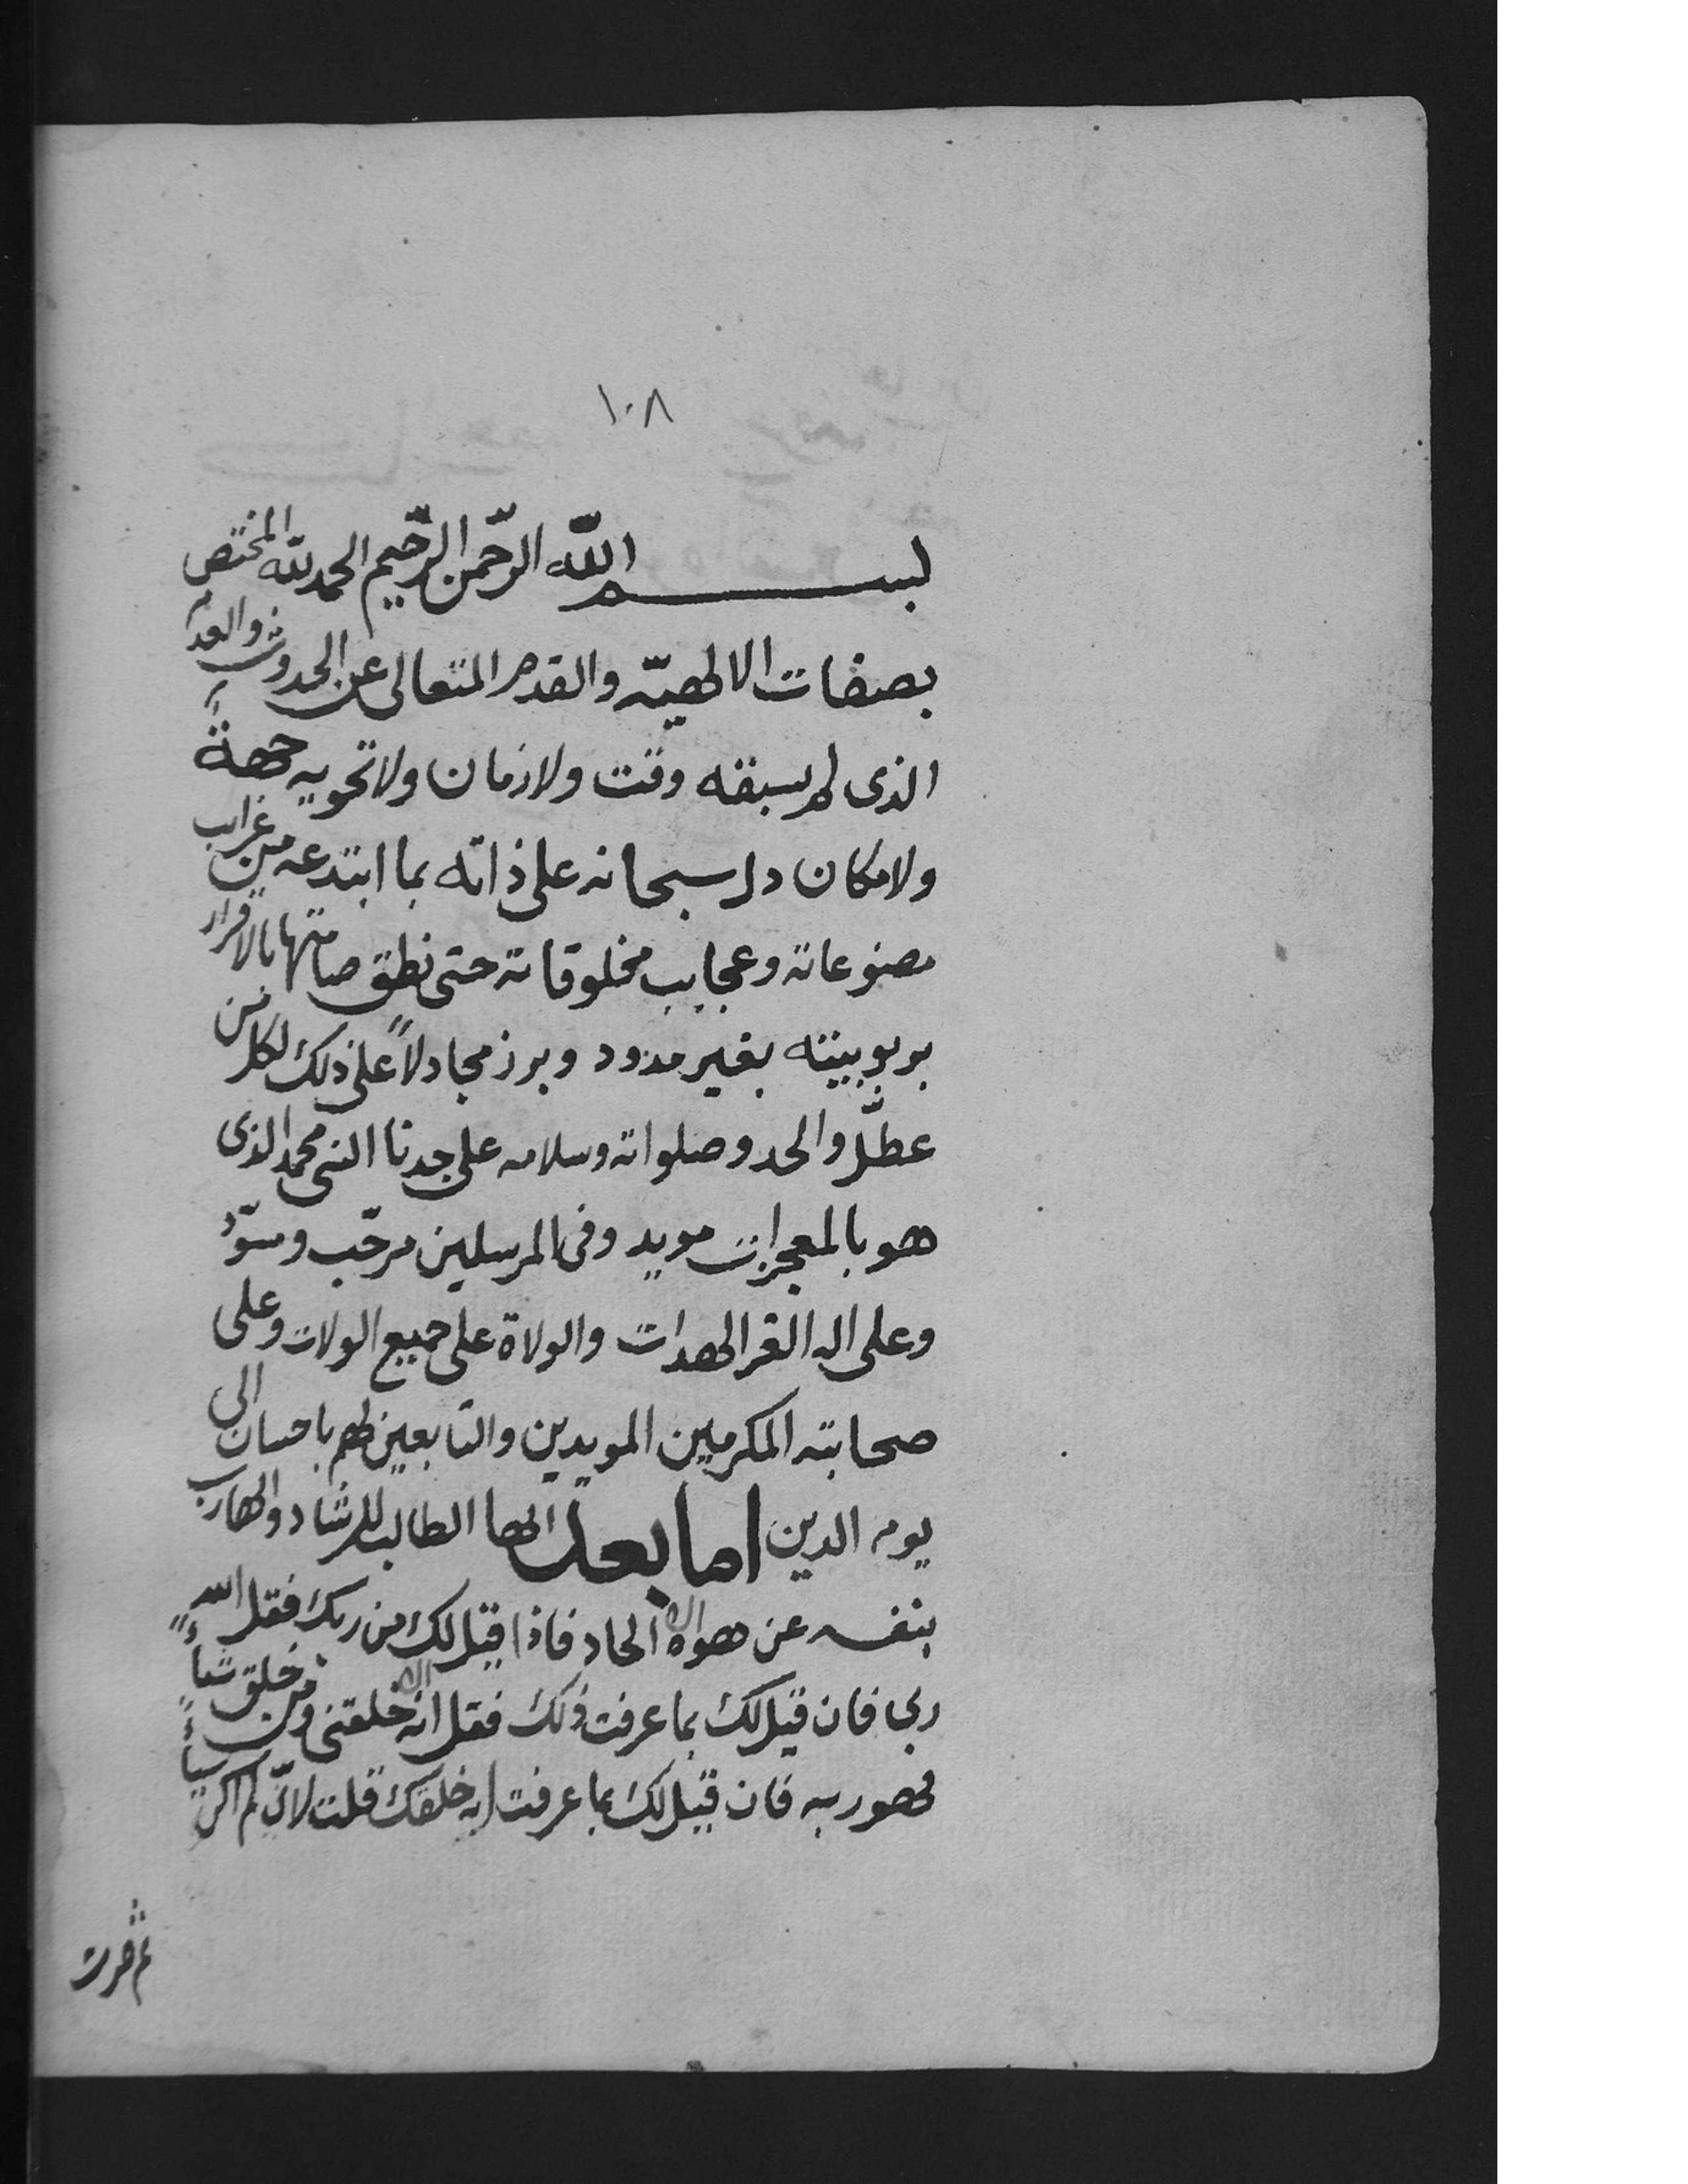 ١٠٨
بسم الله الرحمن الرحيم الحمد لله المختص
بصفات الالهيّه والقدم المتعالى عن الحدوث والعدم
الذى لم يسبقه وقت ولا زمان ولا تحويه جهةٌ
ولا مكان دل سبحانه على ذاته بما ابتدعه من غرايب
مصنوعاته وعجايب مخلوقاته حتى نطق صامتها بالاقرار
بربوبيته بغير مذود وبرز مجادلاً على ذلك لكل من
عطّل والحد وصلواته وسلامه على جدنا النبى محمد الذى
هو بالمعجزات مويد وفى المرسلين مرحّب ومسوّد
وعلى اله الغر الهدات والولاة على جميع الولات وعلى
صحابته المكرمين المويدين والتابعين لهم باحسان الى
يوم الدين اما بعد ايها الطالب للرشاد والهارب
بنفسه عن هواه الالحاد فاذا قيل لك من ربك فقل الله
ربى فان قيل لك بما عرفت ذلك فقل انه خلقنى ومن خلق شياءً
فهو ربه فان قيل لك بما عرفت انه خلقك قلت لانى لم اكن شياءً
ثم صرت